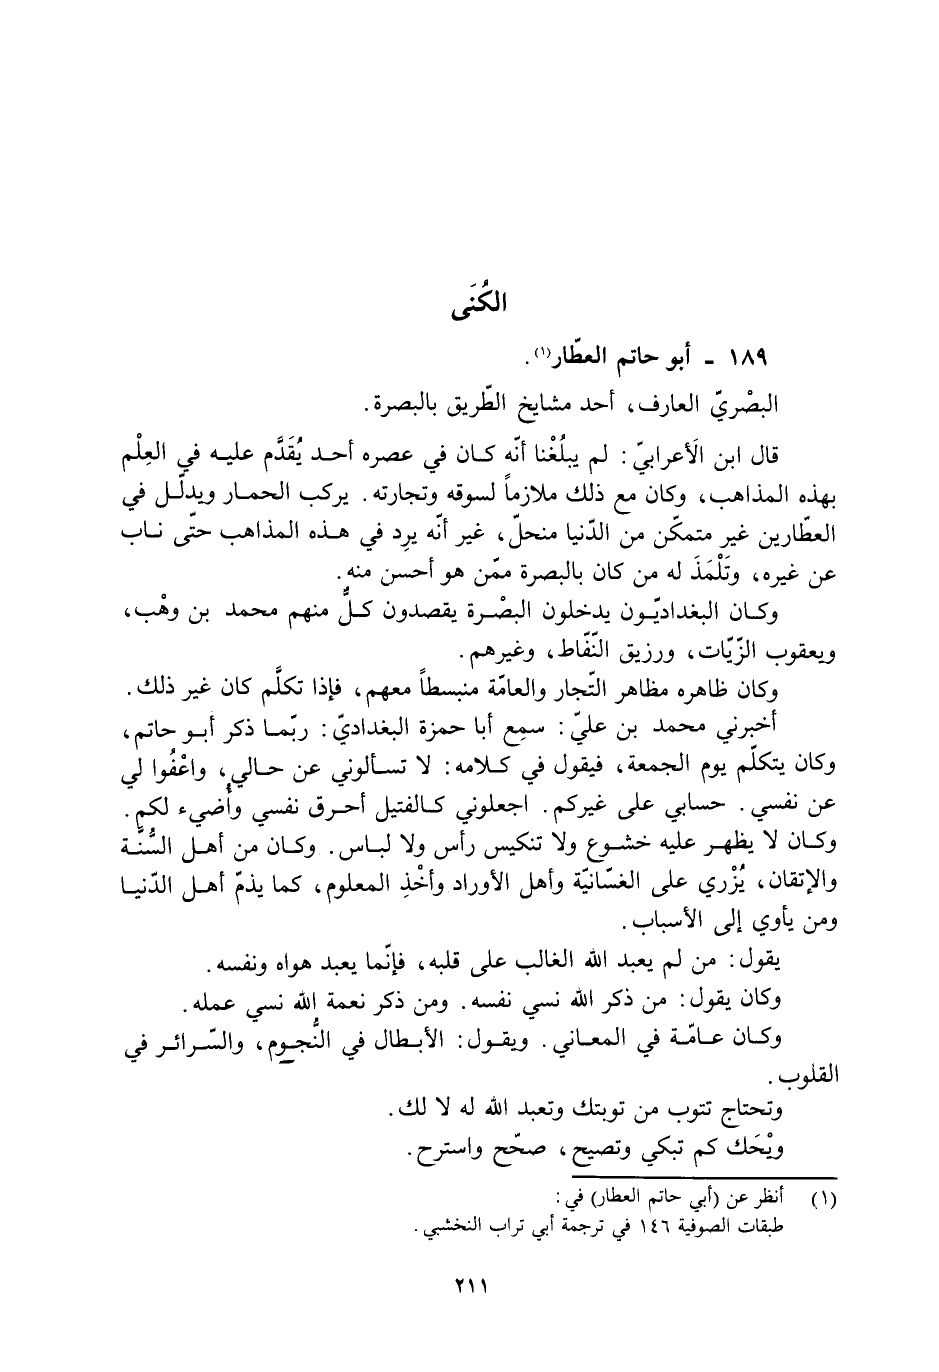 الكُنَى
١٨٩ - أبو حاتم العطّار(١).
البصْريّ العارف، أحد مشايخ الطّريق بالبصرة.
قال ابن الَأعرابيّ: لم يبلُغْنا أنّه كان في عصره أحد يُقَدَّم عليه في العِلْم
بهذه المذاهب، وكان مع ذلك ملازماً لسوقه وتجارته. يركب الحمار ويدلّل في
العطّارين غير متمكّن من الدّنيا منحلّ، غير أنّه يرِد في هذه المذاهب حتّى ناب
عن غيره، وتَلْمَذَ له من كان بالبصرة ممّن هو أحسن منه.
وكان البغداديّون يدخلون البصْرة يقصدون كلُّ منهم محمد بن وهْب،
ويعقوب الزّيّات، ورزيق النّفّاط، وغيرهم.
وكان ظاهره مظاهر التّجار والعامّة منبسطاً معهم، فإذا تكلَّم كان غير ذلك.
أخبرني محمد بن عليّ: سمِع أبا حمزة البغداديّ: ربّما ذكر أبو حاتم،
وكان يتكلّم يوم الجمعة، فيقول في كلامه: لا تسألوني عن حالي، واعْفُوا لي
عن نفسي. حسابي على غيركم. اجعلوني كالفتيل أحرق نفسي وأُضيء لكم.
وكان لا يظهر عليه خشوع ولا تنكيس رأس ولا لباس. وكان من أهل السُّنَّة
والإتقان، يُزْري على الغسّانيّة وأهل الأوراد وأخْذِ المعلوم، كما يذمّ أهل الدّنيا
ومن يأوي إلى الأسباب.
يقول: من لم يعبد الله الغالب على قلبه، فإنّما يعبد هواه ونفسه.
وكان يقول: من ذكر الله نسي نفسه. ومن ذكر نعمة الله نسي عمله.
وكان عامّة في المعاني. ويقول: الأبطال في النُّجوم، والسّرائر في
القلوب.
وتحتاج تتوب من توبتك وتعبد الله له لا لك.
ويْحَك كم تبكي وتصيح، صحّح واسترح.
(١) أنظر عن (أبي حاتم العطار) في:
طبقات الصوفية ١٤٦ في ترجمة أبي تراب النخشبي.
٢١١